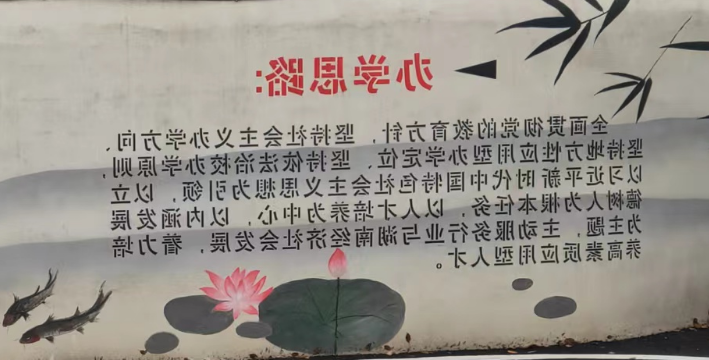 办学思路:
全面贯彻党的教育方针，坚持社会主义办学方向、
坚持地方性应用型办学定位、坚持依法治校办学原则，
以习近平新时代中国特色社会主义思想为引领，以立
德树人为根本任务，以人才培养为中心，以内涵发展
为主题，主动服务行业与湖南经济社会发展，着力培
养高素质应用型人才。